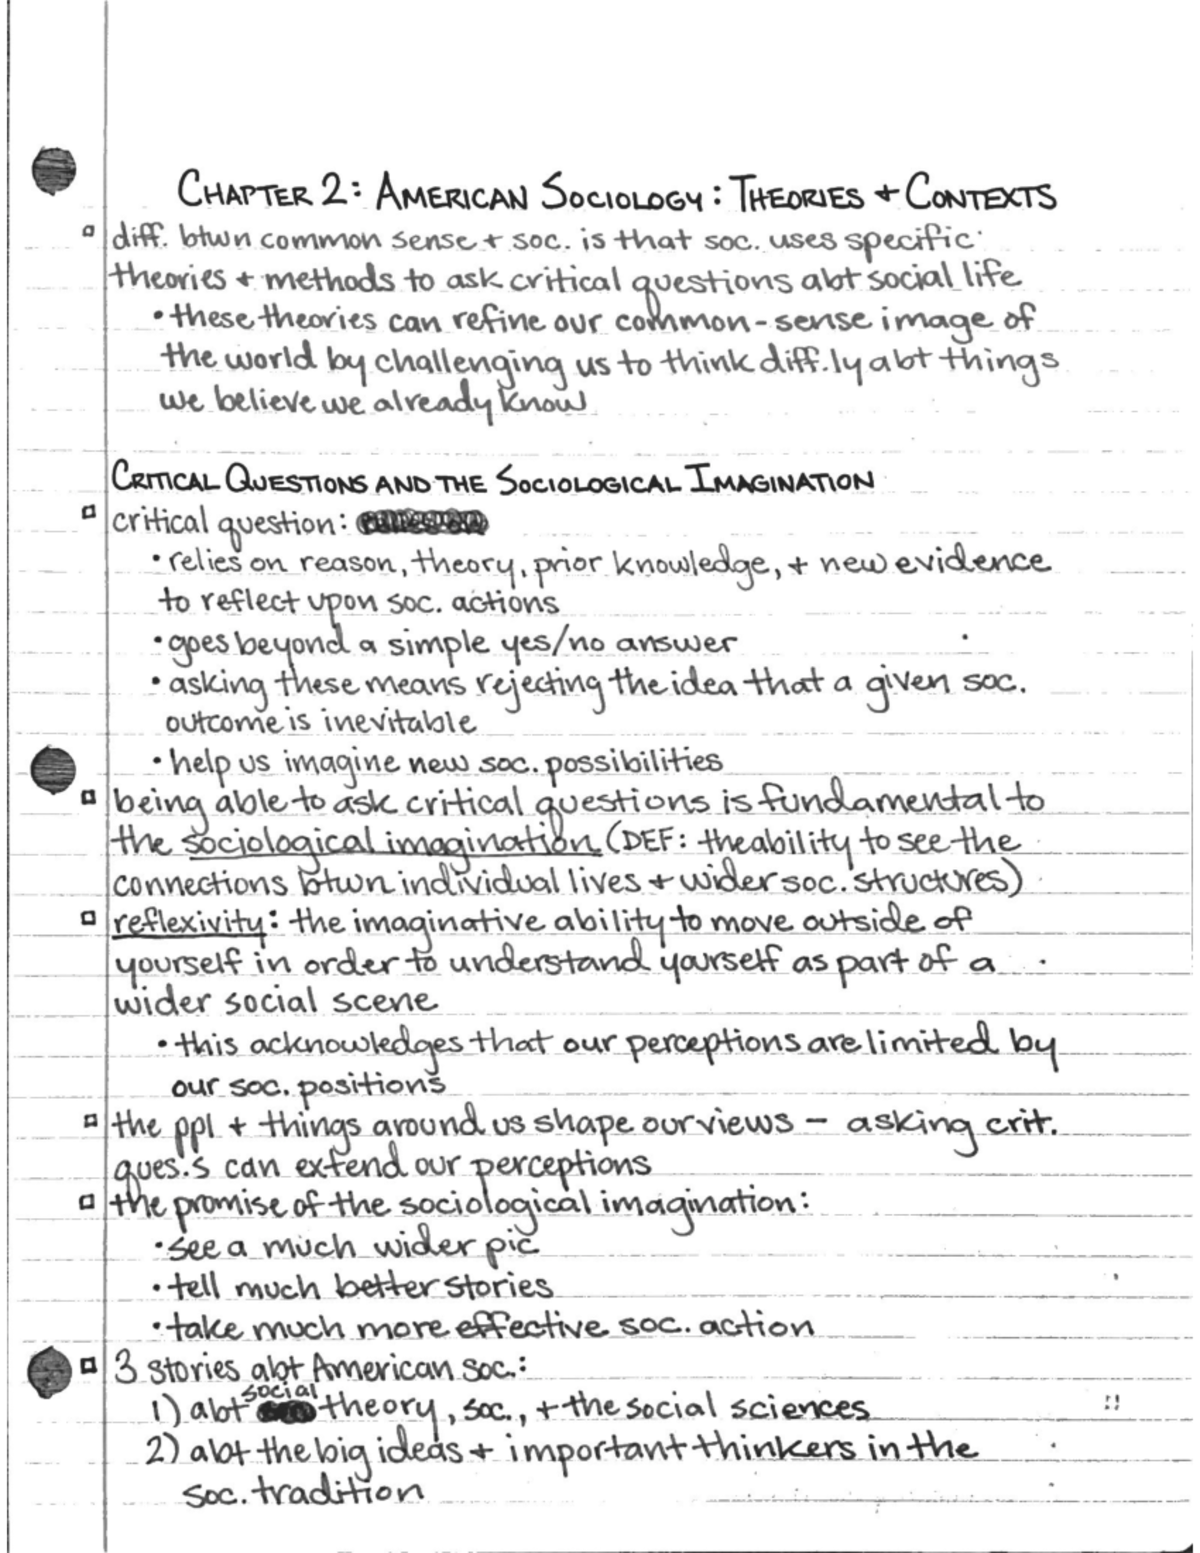 CHAPTER 2: AMERICAN SOCIOLOGY: THEORIES + CONTEXTS
▫ diff. btwn common sense + soc. is that soc. uses specific
theories + methods to ask critical questions abt social life
• these theories can refine our common-sense image of
the world by challenging us to think diff.ly abt things
we believe we already know
CRITICAL QUESTIONS AND THE SOCIOLOGICAL IMAGINATION
▫ critical question:
• relies on reason, theory, prior knowledge, + new evidence
to reflect upon soc. actions
• goes beyond a simple yes/no answer
• asking these means rejecting the idea that a given soc.
outcome is inevitable
• help us imagine new soc. possibilities
▫ being able to ask critical questions is fundamental to
the sociological imagination (DEF: the ability to see the
connections btwn individual lives + wider soc. structures)
▫ reflexivity: the imaginative ability to move outside of
yourself in order to understand yourself as part of a
wider social scene
• this acknowledges that our perceptions are limited by
our soc. positions
▫ the ppl + things around us shape our views – asking crit.
ques.s can extend our perceptions
▫ the promise of the sociological imagination:
• see a much wider pic
• tell much better stories
• take much more effective soc. action
▫ 3 stories abt American soc.:
1) abt social theory, soc., + the social sciences
2) abt the big ideas + important thinkers in the
soc. tradition